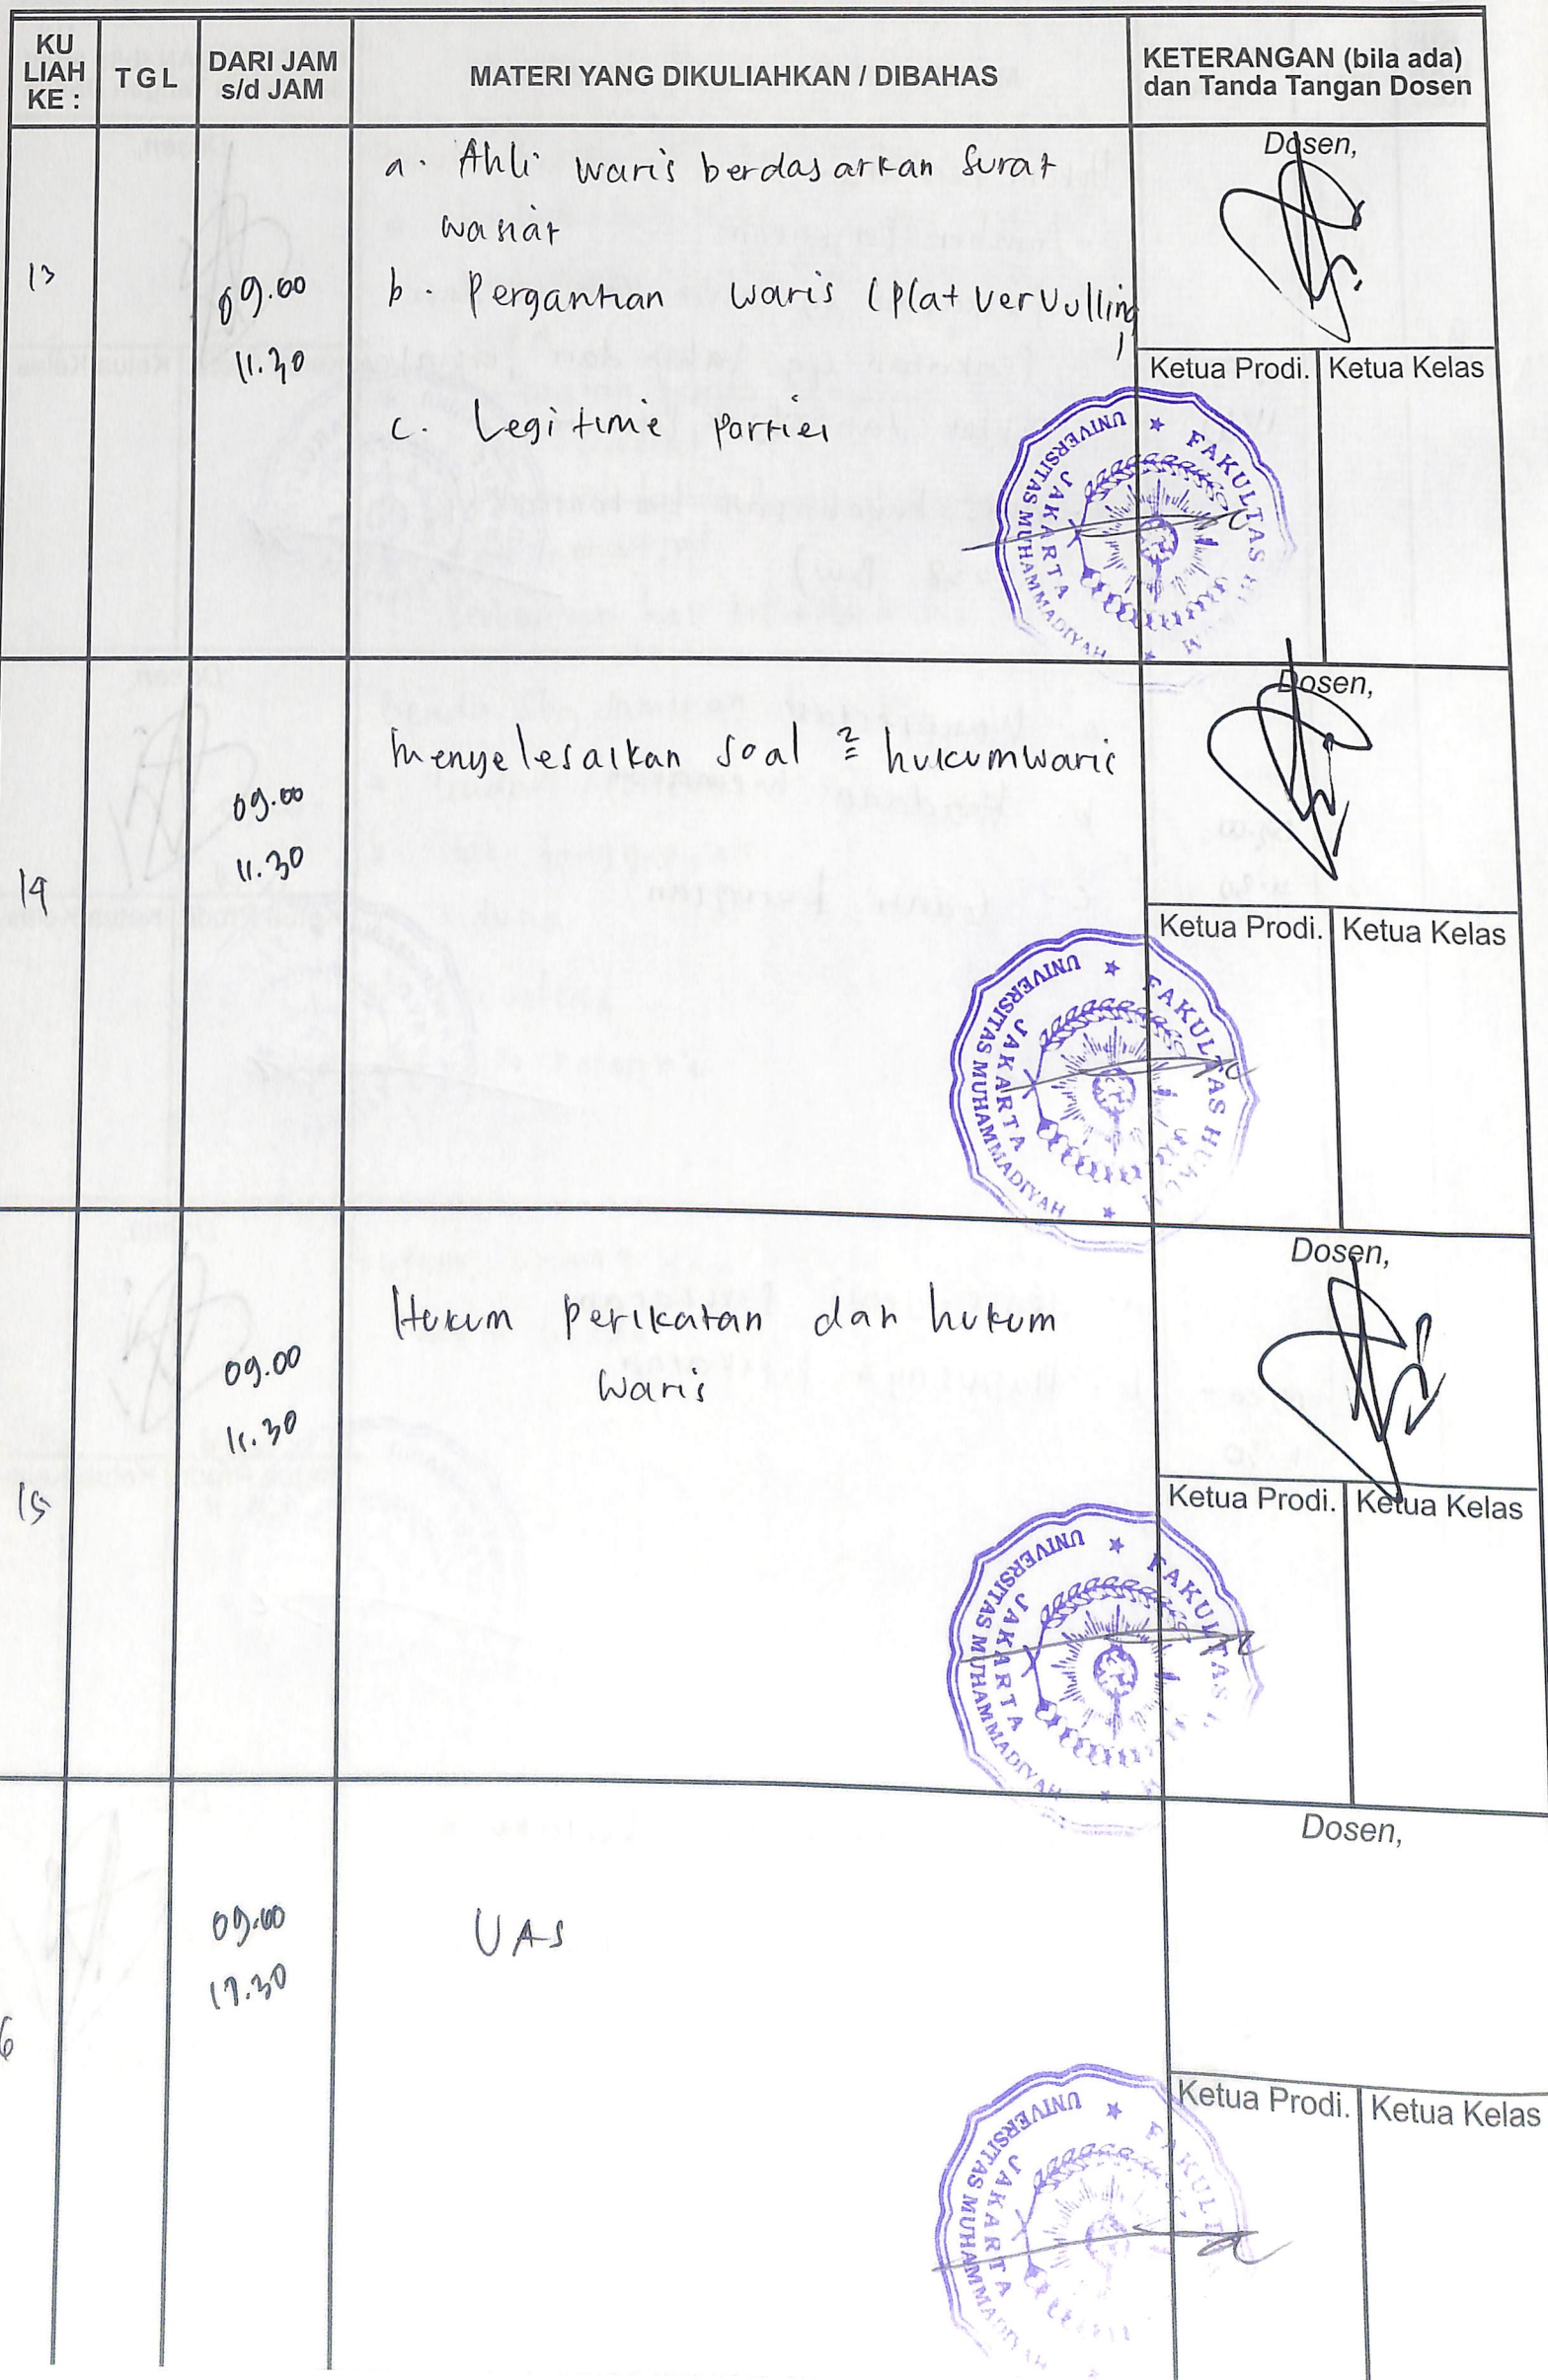 KU LIAH KE :
TGL
DARI JAM s/d JAM
MATERI YANG DIKULIAHKAN / DIBAHAS
KETERANGAN (bila ada) dan Tanda Tangan Dosen
13
09.00
11.30
a. Ahli waris berdasarkan Surat
wasiat
b. Pergantian waris (Plat vervulling)
c. Legitime Portiei
Dosen,
Ketua Prodi.
Ketua Kelas
UNIVERSITAS MUHAMMADIYAH ★ FAKULTAS
JAKARTA
14
09.00
11.30
Menyelesaikan soal 2 hukum waris
Dosen,
Ketua Prodi.
Ketua Kelas
UNIVERSITAS MUHAMMADIYAH ★ FAKULTAS HUKUM
JAKARTA
15
09.00
11.30
Hukum Perikatan dan hukum
waris
Dosen,
Ketua Prodi.
Ketua Kelas
UNIVERSITAS MUHAMMADIYAH ★ FAKULTAS
JAKARTA
6
09.00
11.30
UAS
Dosen,
Ketua Prodi.
Ketua Kelas
UNIVERSITAS MUHAMMADIYAH ★ FAKULTAS
JAKARTA